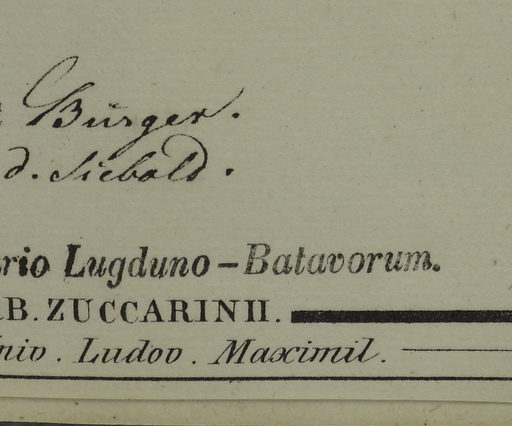 Bürger.
d. Siebold.
rio Lugduno-Batavorum.
RB. ZUCCARINII.
niv. Ludov. Maximil.